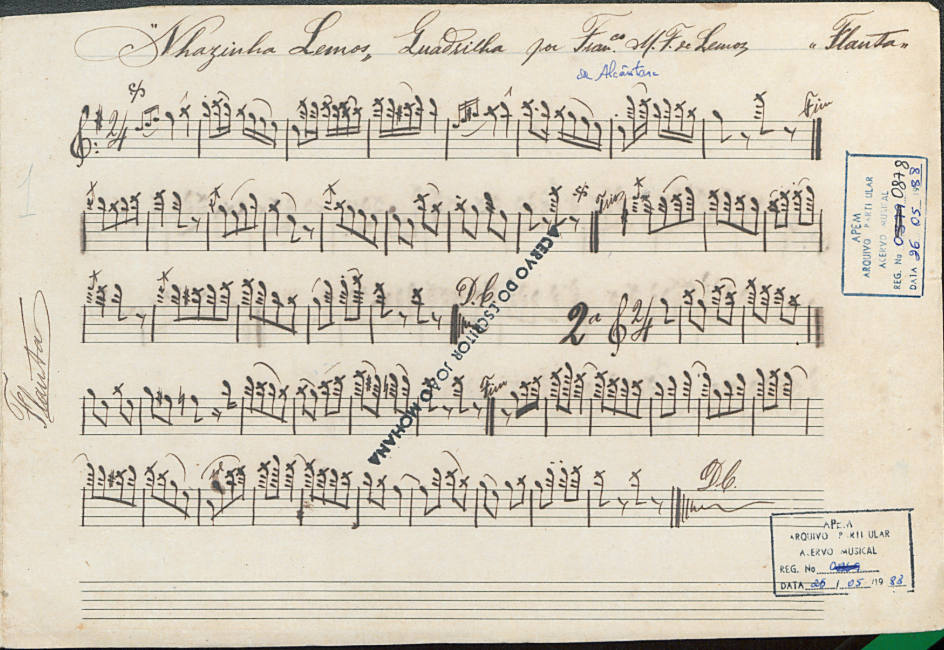 "Nhazinha Lemos" Quadrilha por Fran.co M. F. de Lemos "Flauta"
de Alcântara
2/4
Fim
Fim
APEM
ARQUIVO PARTICULAR
ACERVO MUSICAL
REG. No 0379 0878
DATA 26 05 1988
D.C.
2a 2/4
ACERVO DO ESCRITOR JOÃO MOHANA
Flauta
Fim
D.C.
APEM
ARQUIVO PARTICULAR
ACERVO MUSICAL
REG. No
DATA 26 / 05 / 19 88